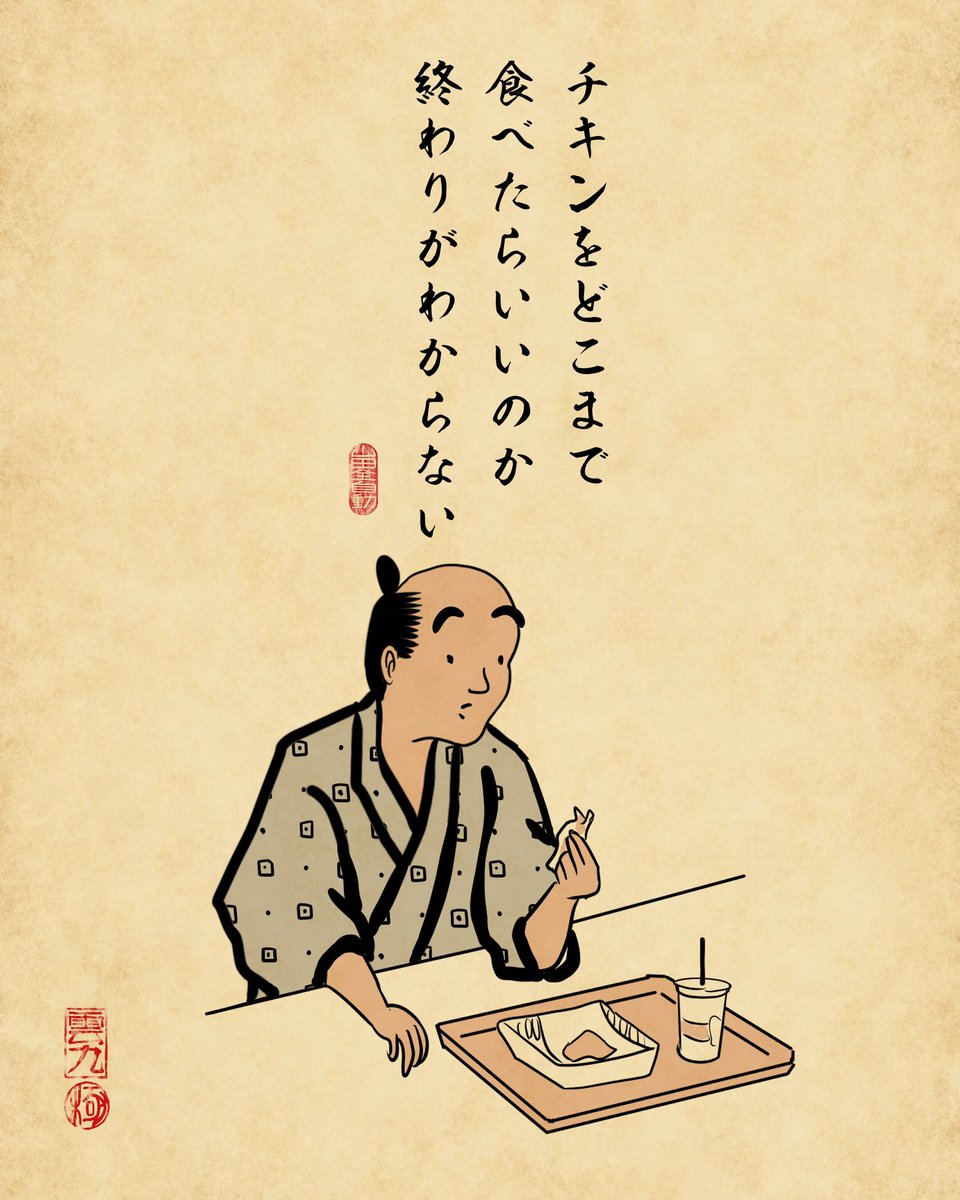 チキンをどこまで
食べたらいいのか
終わりがわからない